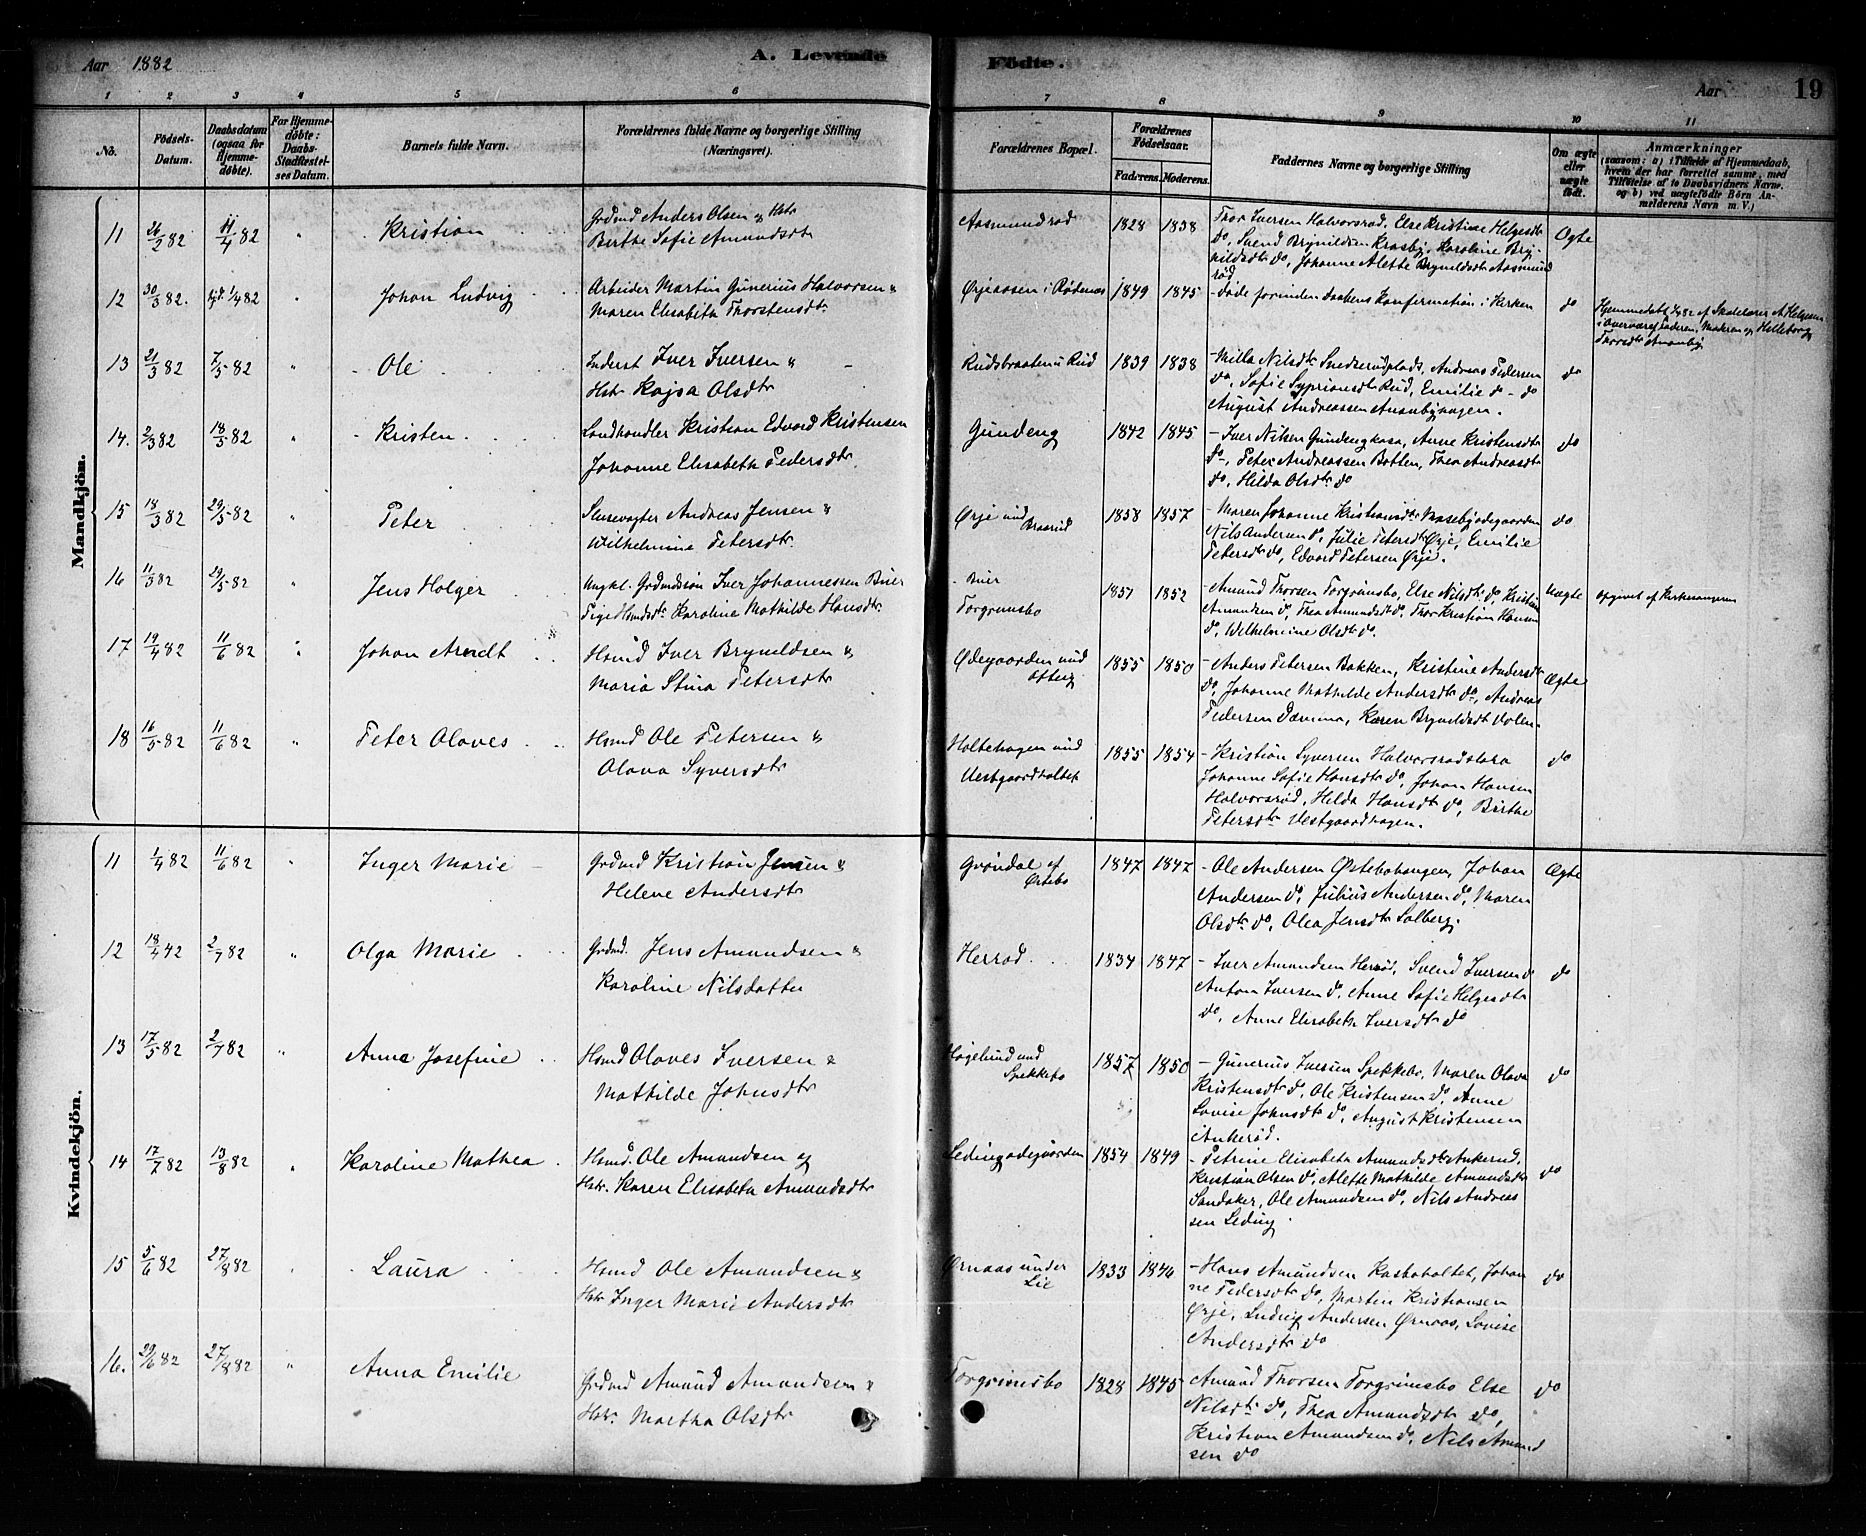 Aar 1882
A. Levende
Födte.
Aar
19
1
2
3
4
5
6
7
8
9
10
11
No.
Födsels-Datum.
Daabsdatum (ogsaa for Hjemmedöbte).
For Hjemmedöbte: Daabs-Stadfæstelses Datum.
Barnets fulde Navn.
Forældrenes fulde Navne og borgerlige Stilling (Næringsvei).
Forældrenes Bopæl.
Forældrenes Födselsaar.
Faderens.
Moderens.
Faddernes Navne og borgerlige Stilling
Om ægte eller uægte födt.
Anmærkninger
(saasom: a) i Tilfælde af Hjemmedaab, hvem der har forrettet samme, med Tilföielse af to Daabsvidners Navne. og b) ved uægtefödte Börn Anmelderens Navn m. V.)
Mandkjön.
11 26/2 82 11/4 82 " Kristian
Grdmd Anders Olsen & Hstr
Berthe Sofie Amundsdtr
Aasmundrød 1828 1838
Thor Iversen Halvorsrød, Else Kristine Helgesdtr
do, Svend Brynildsen Krosby, Karoline Bry-
nildsdtr do, Johanne Alette Brynildsdtr Aasmund
rød
Ægte
12 30/3 82. 1/4 82 " Johan Ludvig
Arbeider Martin Gunerius Halvorsen &
Maren Elisabeth Thorstensdtr
Ørjeaasen i Rødenæs 1849 1845
- døde forinden Daabens Konfirmation i Kirken
do
Hjemmedøbt 1/4 82 af Skolelærer A Helgesen
i Overvær af Faderen, Moderen og Helleborg
Thorsdtr Ananby
13 21/3 82 7/5 82 " Ole
Inderst Iver Iversen &
Hstr Kajsa Olsdtr
Rudsbraaten u Rud 1839 1838
- Milla Nilsdtr Snedserudplads, Andreas Pedersen
do, Sofie Syprionsdtr Rud, Emilie do - do
August Andreassen Ananbyhagen.
do
14. 2/3 82 18/5 82 " Kristen
Landhandler Kristian Edvard Kristensen
Johanne Elisabeth Pedersdtr
Gundeng 1842 1845
- Iver Nilsen Gundengkasa, Anne Kristensdtr
do, Peter Andreassen Botten, Thea Andreasdtr
do, Hilda Olsdtr do
do
15 18/3 82 29/5 82 " Peter
Slusevogter Andreas Jensen &
Wilhelmine Petersdtr.
Ørje und
Braarud 1858 1857
- Maren Johanne Kristiansdtr Mosebyødegaarden
Nils Andersen do, Julie Petersdtr Ørje, Emilie
Petersdtr do, Edvard Petersen Ørje.
do
16 11/3 82 29/5 82 " Jens Holger
Ungkl. Grdmdssøn Iver Johannessen Buer
Pige Hsmdsdtr Karoline Mathilde Hansdtr.
- Buer
Torgrimsbo 1851 1852
- Amund Thorsen Torgrimsbo, Else Nilsdtr do, Kristian
Amundsen do, Thea Amundsdtr do, Thor Kristian Hansen
do, Wilhelmine Olsdtr do.
Uægte
opgivet af Kirkesangeren
17 19/4 82 11/6 82 " Johan Arndt
Hsmd Iver Brynildsen &
Maria Stina Petersdtr
Ødegaarden und
Ofteig 1855 1850
- Anders Petersen Bakken, Kristine Andersdtr
do, Johanne Mathilde Andersdtr do, Andreas
Pedersen Damme, Karen Brynildsdtr Volen.
Ægte
18 16/5 82 11/6 82 " Peter Olaves
Hsmd Ole Petersen &
Olava Syversdtr
Holtehagen und
Vestgaardholtet 1855 1854
- Kristian Syversen Halvorsrødslora
Johanne Sofie Hansdtr do, Johan Hansen
Halvorsrød, Helda Hansdtr do, Birthe
Petersdtr Vestgaardhagen.
do
Kvindekjön.
11 1/4 82 11/6 82 " Inger Marie
Grdmd Kristian Jensen &
Helene Andersdtr
Grøndal af
Østebø 1847 1847
- Ole Andersen Østebøhaugen, Johan
Andersen do, Julius Andersen do, Maren
Olsdtr do, Olea Jensdtr Solberg.
Ægte
12 18/4 42 2/7 82 " Olga Marie
Grdmd. Jens Amundsen &
Karoline Nilsdatter
Herrød 1834 1847
- Iver Amundsen Herrød, Svend Iversen do
Anton Iversen do, Anne Sofie Helgesdtr
do, Anne Elisabeth Iversdtr do
do
13 17/5 82 2/7 82 " Anna Josefine
Hsmd Olaves Iversen &
Mathilde Johnsdtr
Høgelund und
Spekkebo 1857 1850
- Gunerius Iversen Spekkebo, Maren Olava
Kristensdtr do, Ole Kristensen do, Anne
Lovise Johnsdtr do, August Kristensen
Ankerød.
do
14 17/7 82 13/8 82 " Karoline Mathea
Hsmd. Ole Amundsen og
Hstr. Karen Elisabeth Amundsdtr
Ledingødegaarden 1854 1849
- Petrine Elisabeth Amundsdtr Ankerud,
Kristian Olsen do, Alette Mathilde Amundsdtr
Sandaker, Ole Amundsen do, Nils Andreas
sen Leding.
do
15 5/6 82 27/8 82 " Laura
Hsmd Ole Amundsen &
Hstr Inger Marie Andersdtr
Ørnaas under
Lie 1833 1846
- Hans Amundsen Kasboholtet, Johan
ne Pedersdtr do, Martin Kristiansen
Ørje, Ludvig Andersen Ørnaas, Lovise
Andersdtr do
do
16. 29/6 82 27/8 82 " Anna Emilie
Grdmd Amund Amundsen &
Hstr. Martha Olsdtr
Torgrimsbo 1828 1845
Amund Thorsen Torgrimsbo Else
Nilsdtr do, Thea Amundsdtr do,
Kristian Amundsen do, Nils Amund
sen do
do